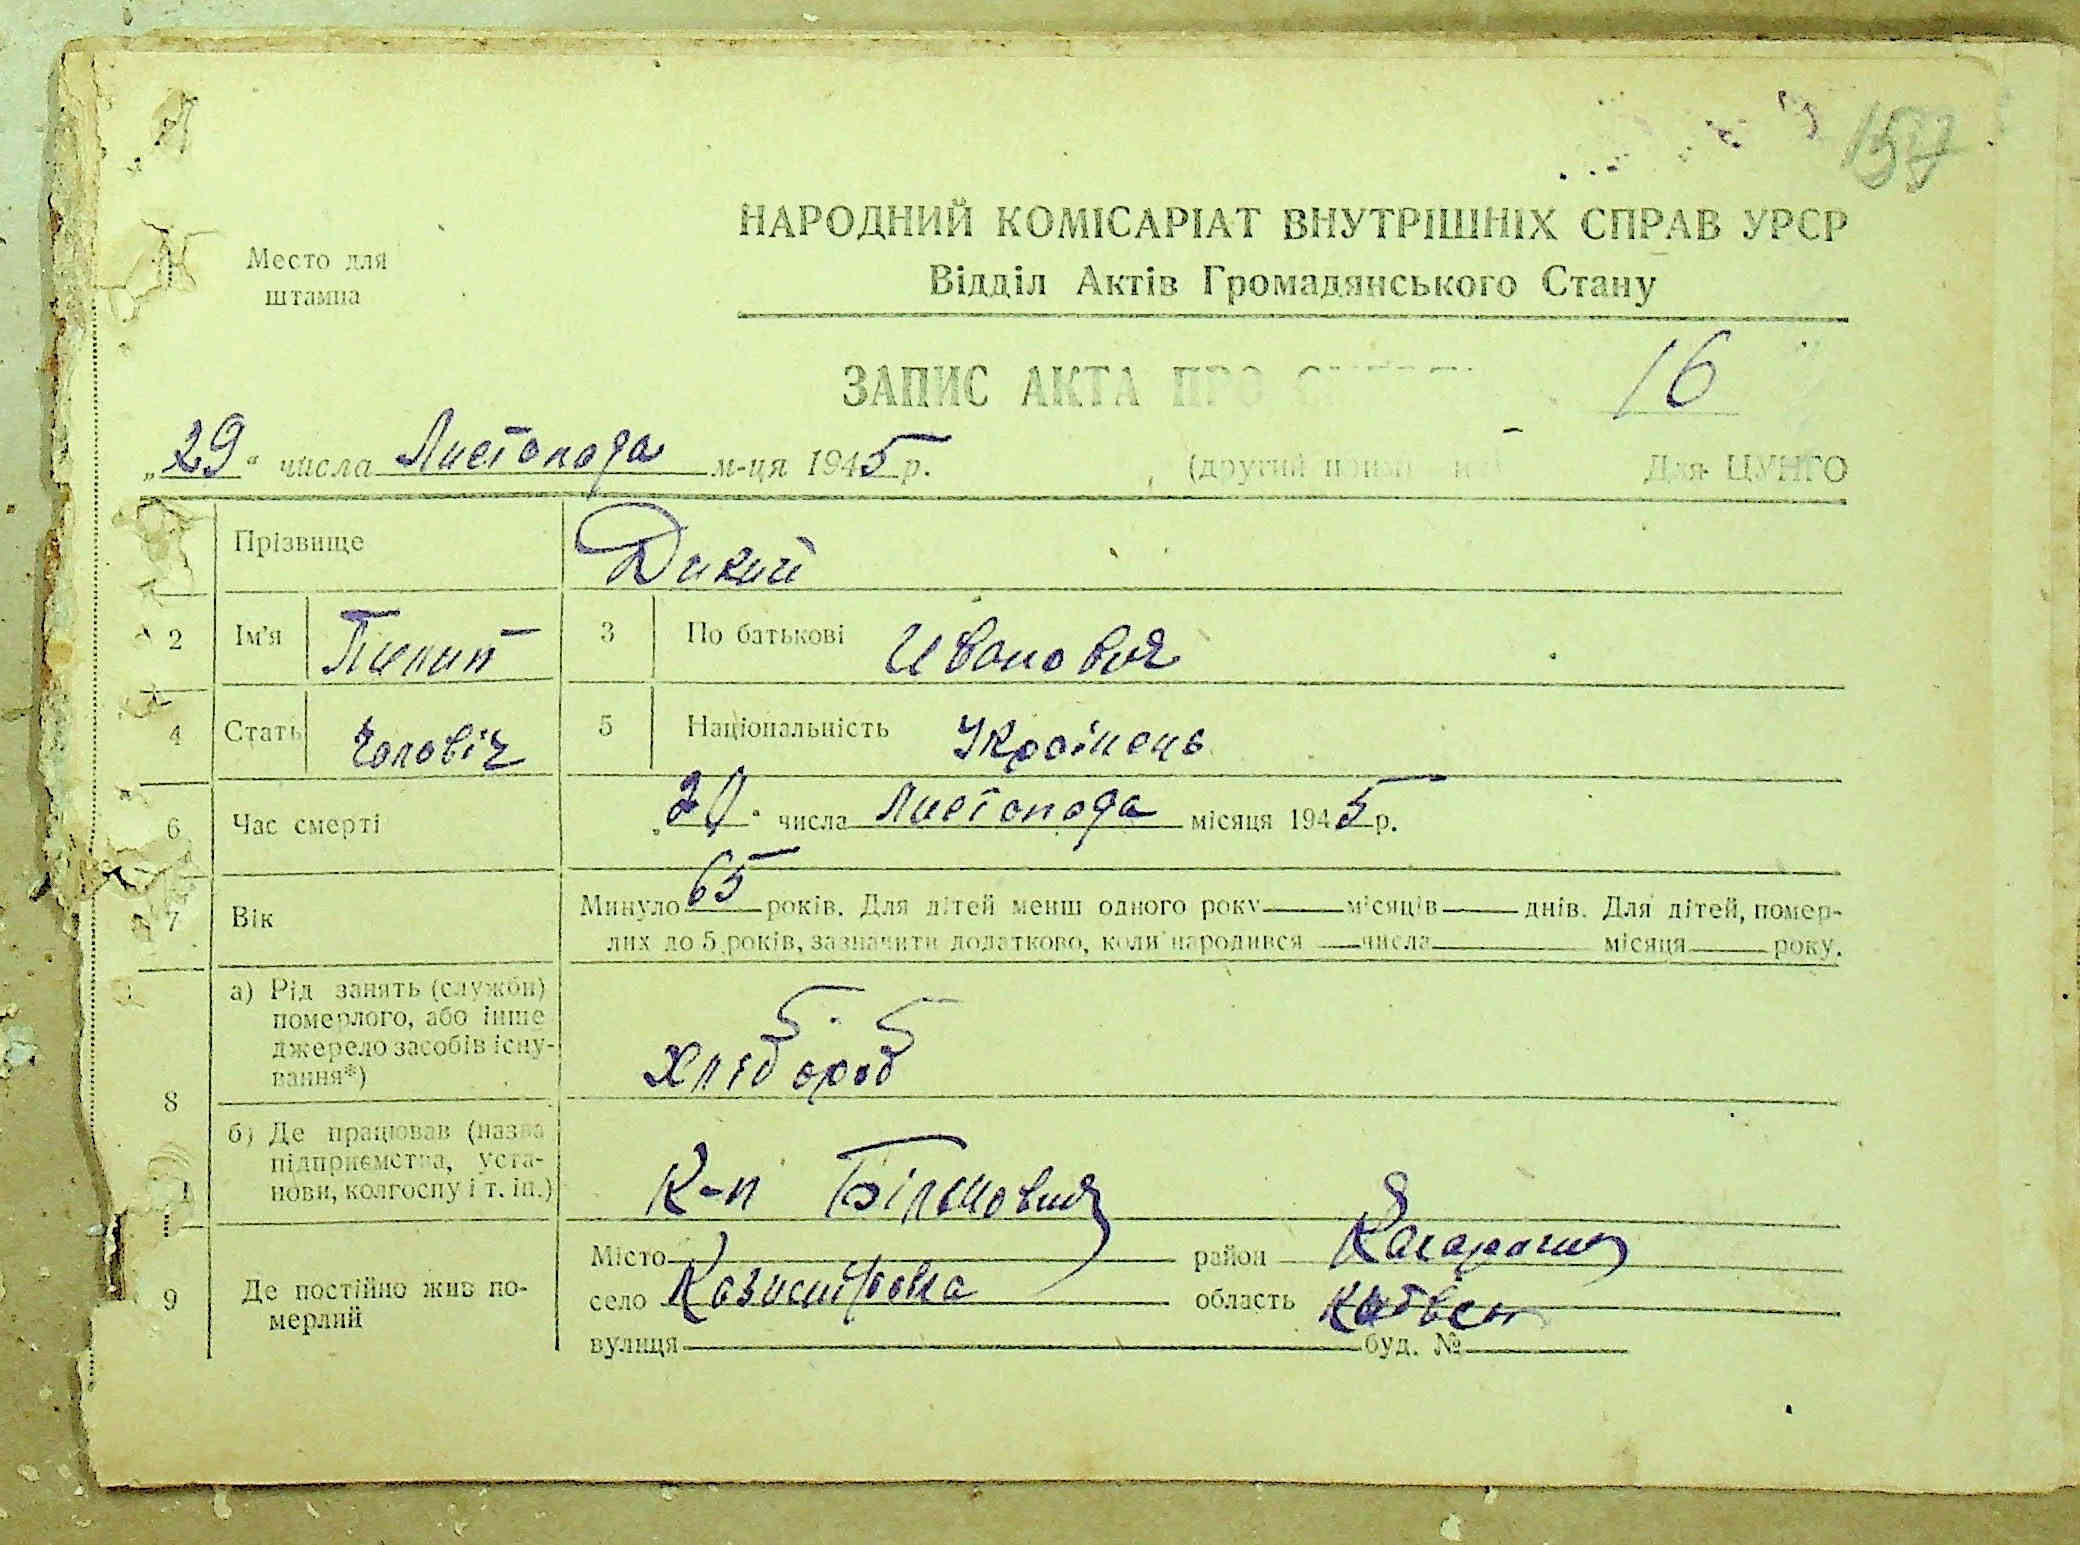 157
Место для
штампа
НАРОДНИЙ КОМІСАРІАТ ВНУТРІШНІХ СПРАВ УРСР
Відділ Актів Громадянського Стану
ЗАПИС АКТА ПРО 16
„29“ числа Листопада м-ця 1945 р. (другий Для ЦУНГО
Прізвище Дикий
2 Ім'я Пилип 3 По батькові Иванович
4 Стать Чоловіч 5 Національність Українець
6 Час смерті „ “ числа Листопада місяця 1945 р.
7 Вік Минуло 65 років. Для дітей менш одного року місяців днів. Для дітей, помер-
лих до 5 років, зазначити додатково, коли народився числа місяця року.
8 а) Рід занять (служби)
померлого, або інше
джерело засобів існу-
вання*)
Хлібороб
б) Де працював (назва
підприємства, уста-
нови, колгоспу і т. ін.)
К-п Більшовик
9 Де постійно жив по-
мерлий
Місто район Кагарлик
село область Київськ
вулиця буд. №